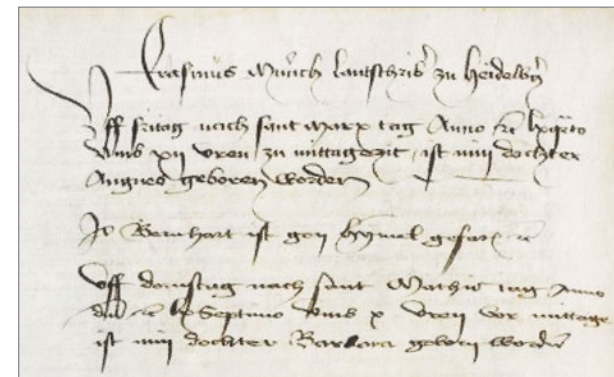 Erasimus Münch lantschriber zu heidelberg
Uff fritag nach sant Marx tag Anno
vmb xii vren zu mittagezit ist mij dochter
Angnes geboren worden
Bernhart ist gen hymel gefaren
Uff donrstag nach sant Mathis tag Anno
Septimo vmb x vren vor mittage
ist mij dochter Barbara geborn worden